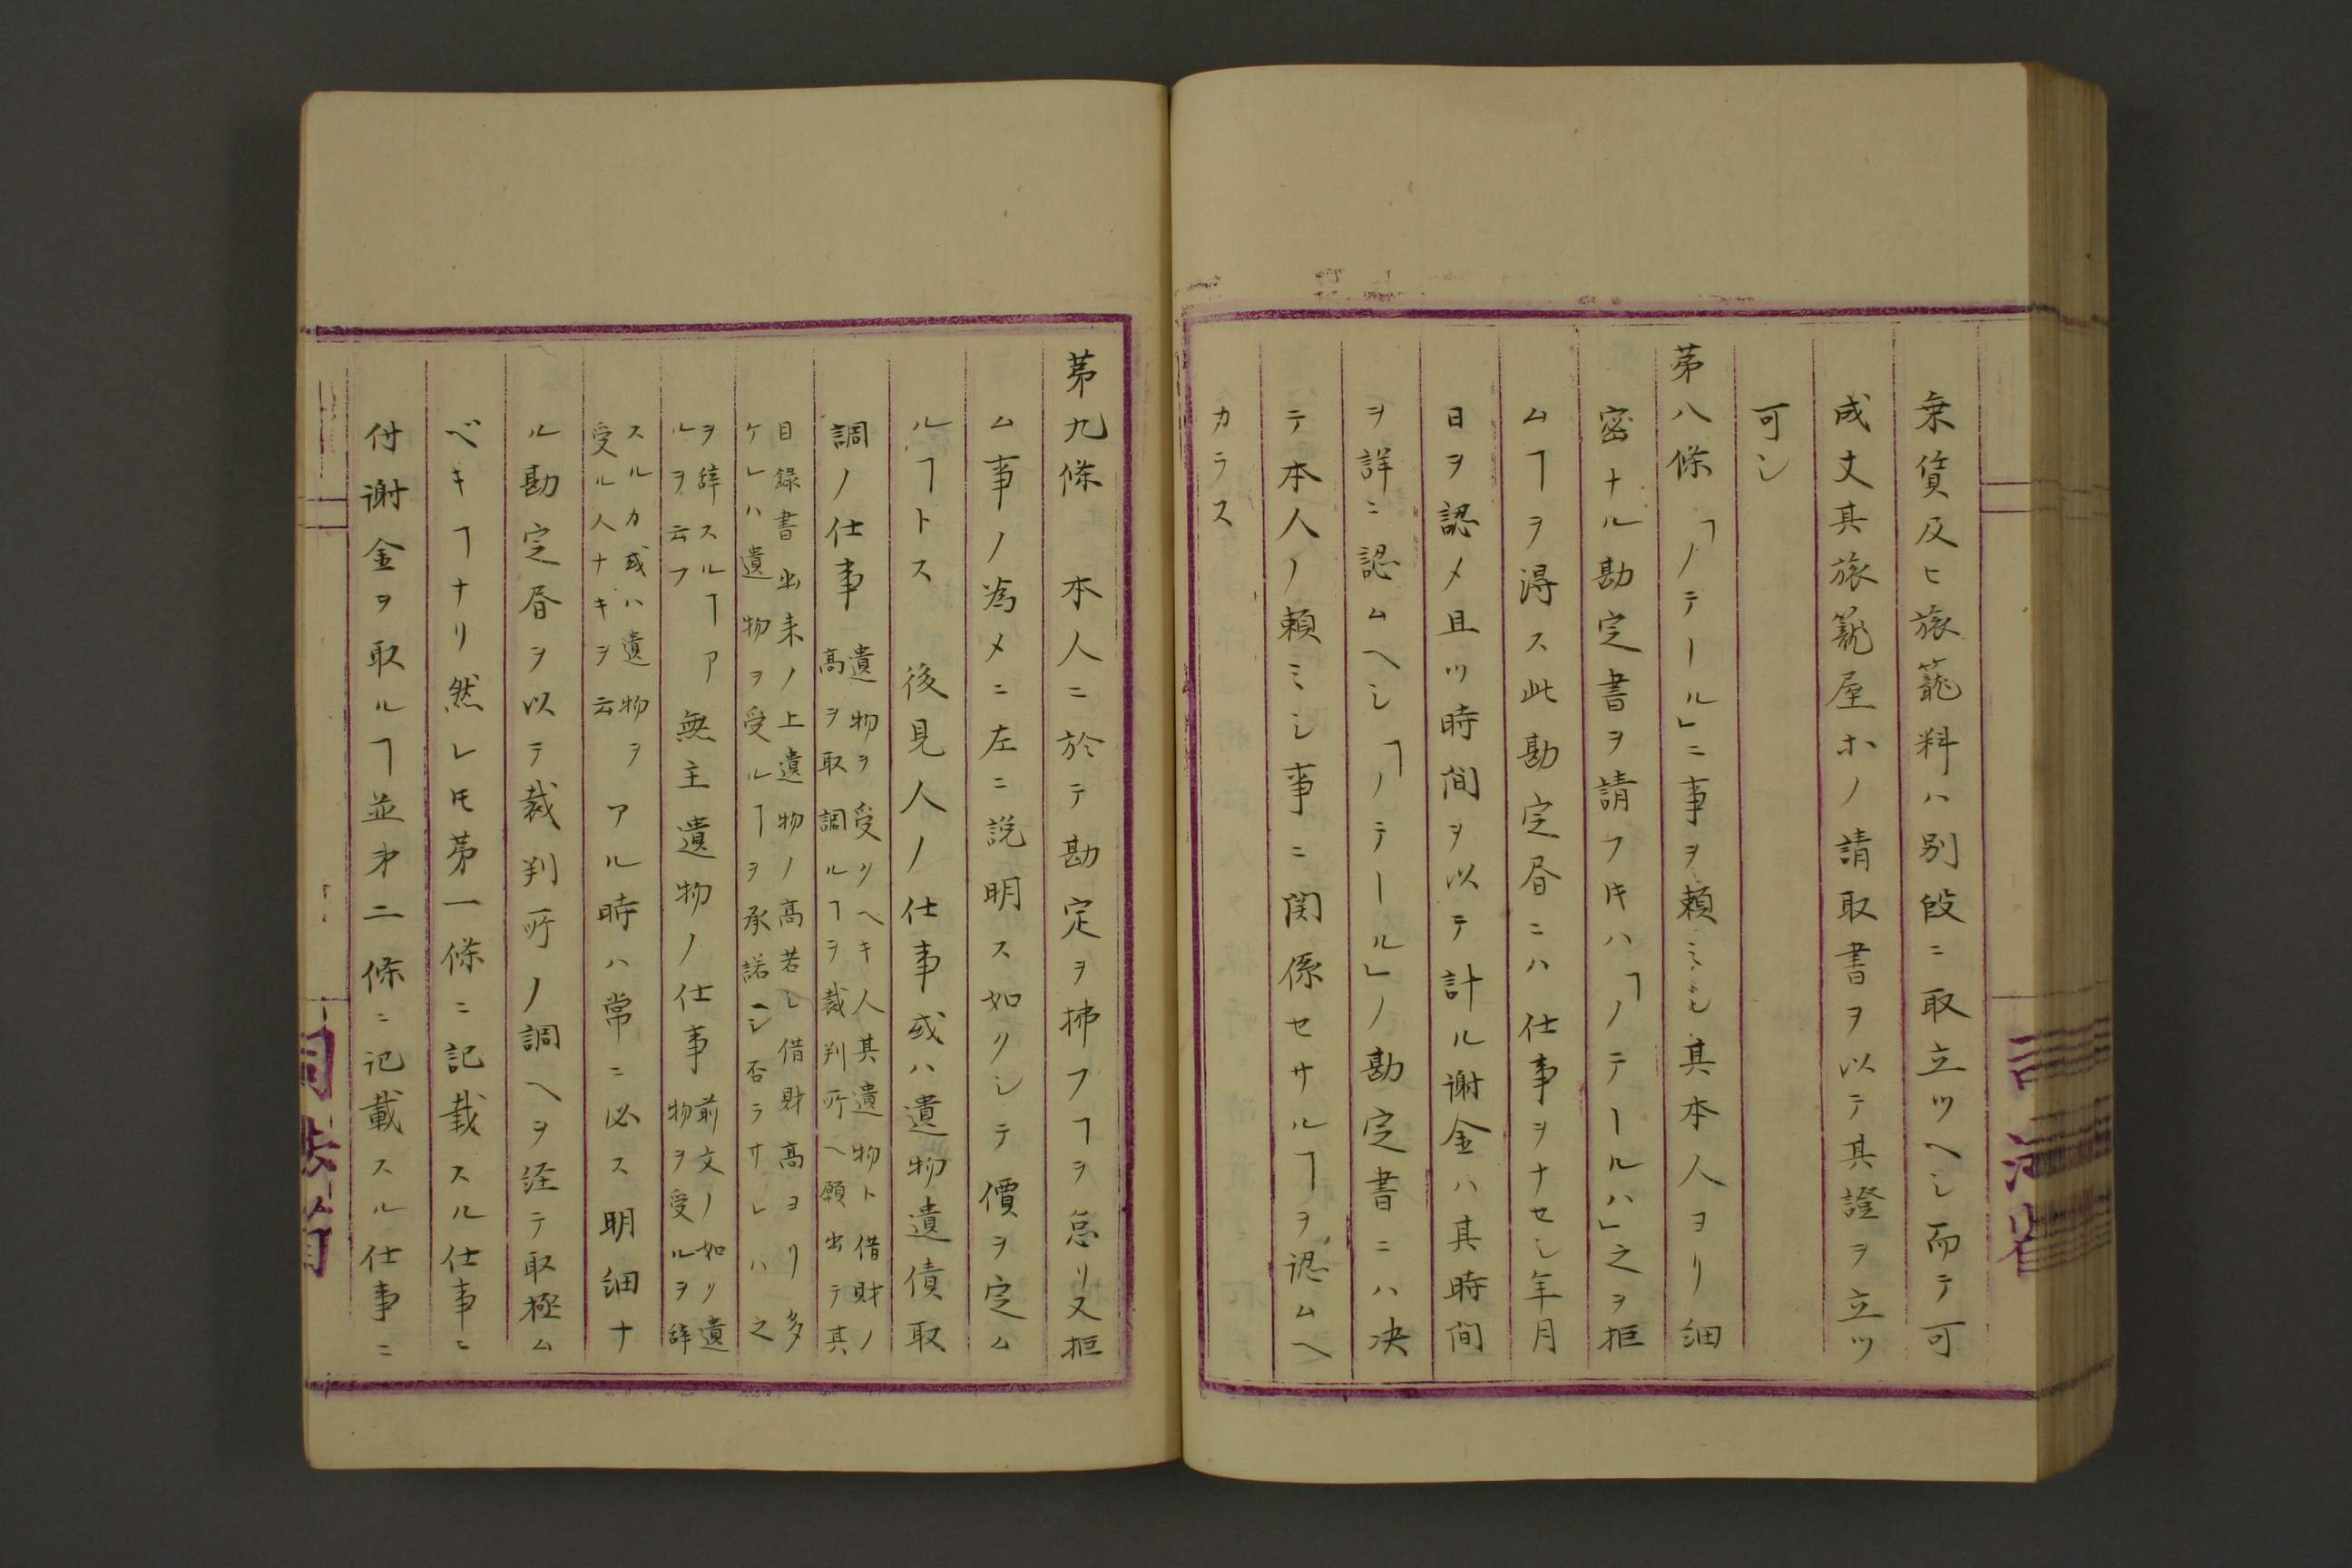 乗賃及ヒ旅籠料ハ別段ニ取立ツヘシ而テ可
成丈其旅籠屋ホノ請取書ヲ以テ其證ヲ立ツ
可シ
第八條「ノテール」ニ事ヲ頼ミシ其本人ヨリ細
密ナル勘定書ヲ請フ𪜈ハ「ノテールハ」之ヲ拒
ムヿヲ得ス此勘定昏ニハ仕事ヲナセシ年月
日ヲ認メ且ツ時間ヲ以テ計ル謝金ハ其時間
ヲ詳ニ認ムヘシ「ノテール」ノ勘定書ニハ决
テ本人ノ頼ミシ事ニ関係セサルヿヲ認ムヘ
カラス
司法省
第九條 本人ニ於テ勘定ヲ拂フヿヲ怠リ又拒
ム事ノ為メニ左ニ説明ス如クシテ價ヲ定ム
ルヿトス 後見人ノ仕事或ハ遺物遺債取
調ノ仕事
遺物ヲ受クヘキ人其遺物ト借財ノ
高ヲ取調ルヿヲ裁判所ヘ願出テ其
目録書出来ノ上遺物ノ高若シ借財高ヨリ多
ケレハ遺物ヲ受ルヿヲ承諾シ否ラサレハ之
ヲ辞スルヿア
ルヲ云フ
無主遺物ノ仕事
前文ノ如ク遺
物ヲ受ルヲ辞
スルカ或ハ遺物ヲ
受ル人ナキヲ云
アル時ハ常ニ必ス明細ナ
ル勘定昏ヲ以テ裁判所ノ調ヘヲ経テ取極ム
ベキヿナリ然レ𪜈第一條ニ記載スル仕事ニ
付謝金ヲ取ルヿ並才二條ニ記載スル仕事ニ
司法省